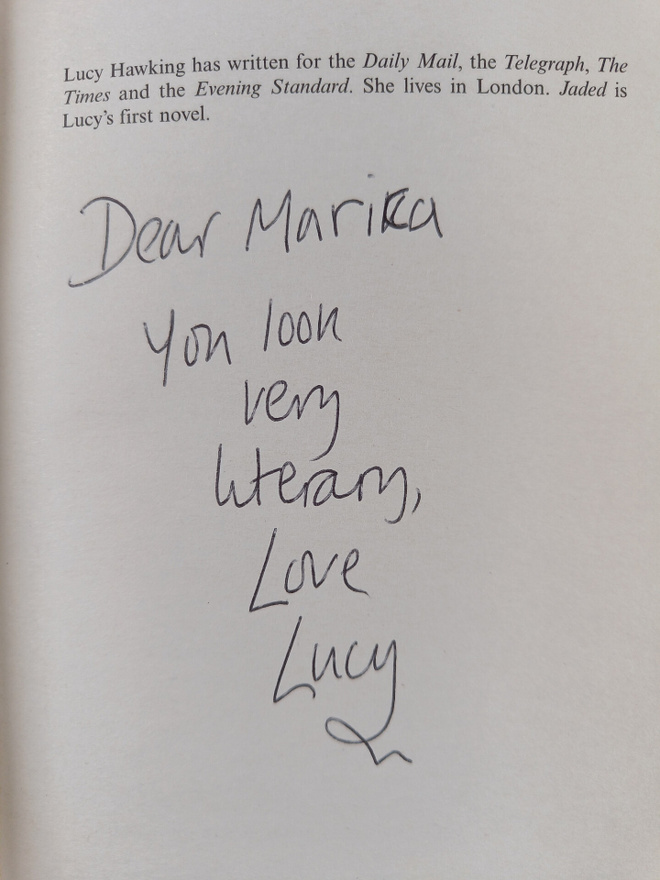 Lucy Hawking has written for the Daily Mail, the Telegraph, The
Times and the Evening Standard. She lives in London. Jaded is
Lucy's first novel.
Dear Marika
You look
very
literary,
Love
Lucy